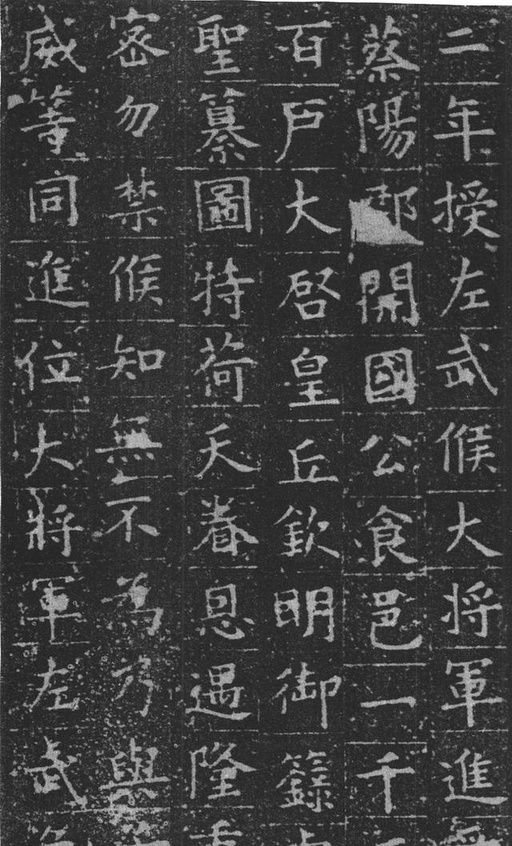 二年授左武候大将軍進
蔡陽郡開國公食邑一千
百戶大啓皇丘欽明御籙
聖纂圖特荷天眷恩遇隆
密勿禁候知無不為乃與
威等同進位大將軍左武